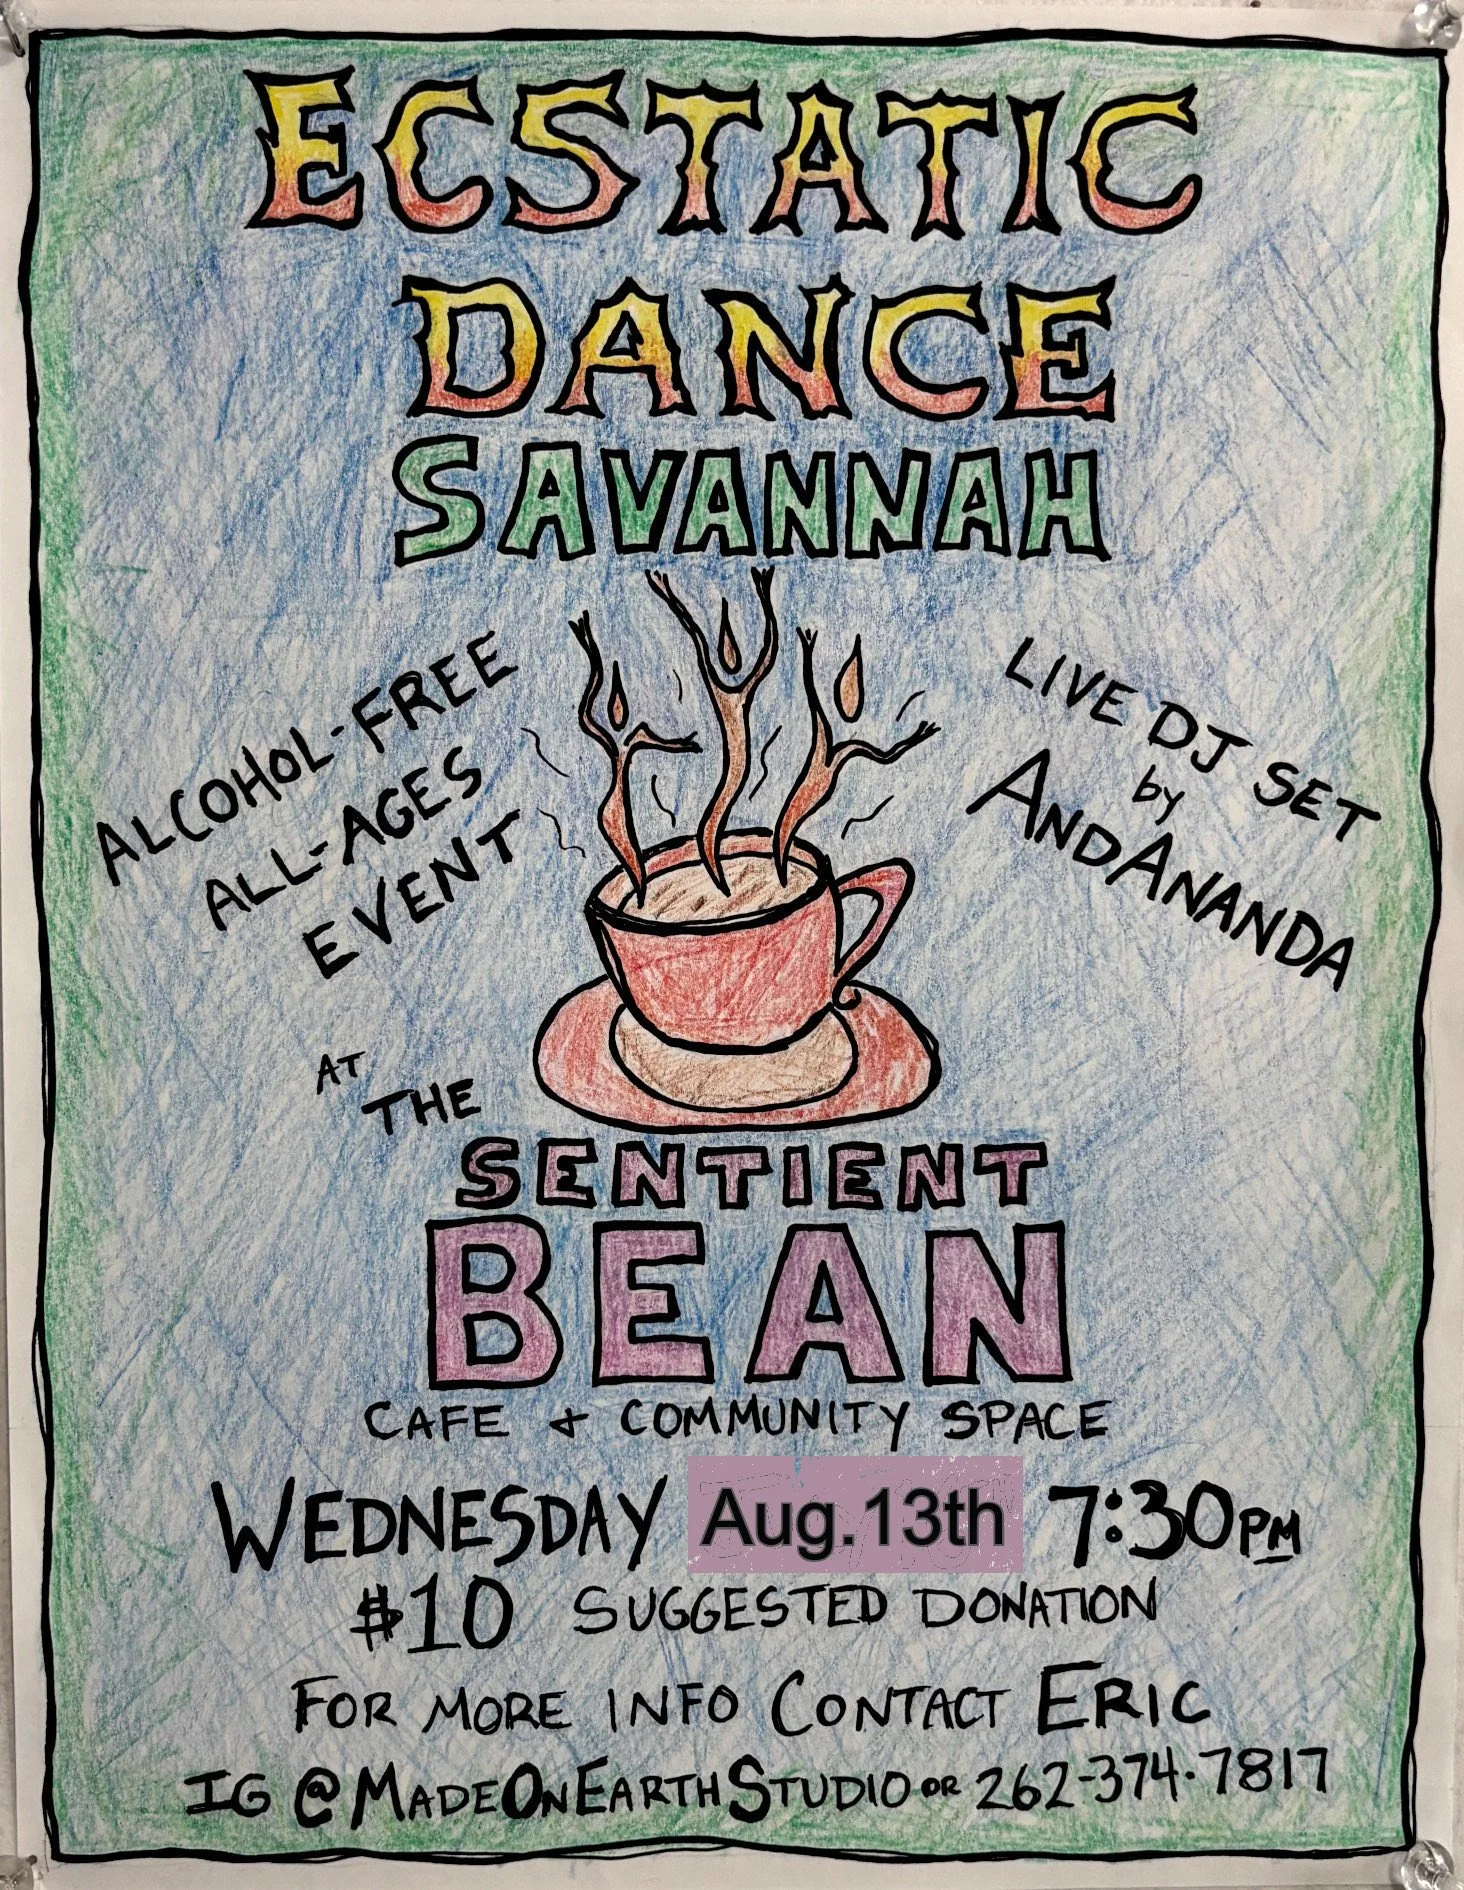 ECSTATIC
DANCE
SAVANNAH
ALCOHOL-FREE
ALL-AGES
EVENT
LIVE DJ SET
by
ANDANANDA
AT
THE
SENTIENT
BEAN
CAFE & COMMUNITY SPACE
WEDNESDAY Aug.13th 7:30PM
$10 SUGGESTED DONATION
FOR MORE INFO CONTACT ERIC
IG @MADEONEARTHSTUDIO OR 262-374-7817